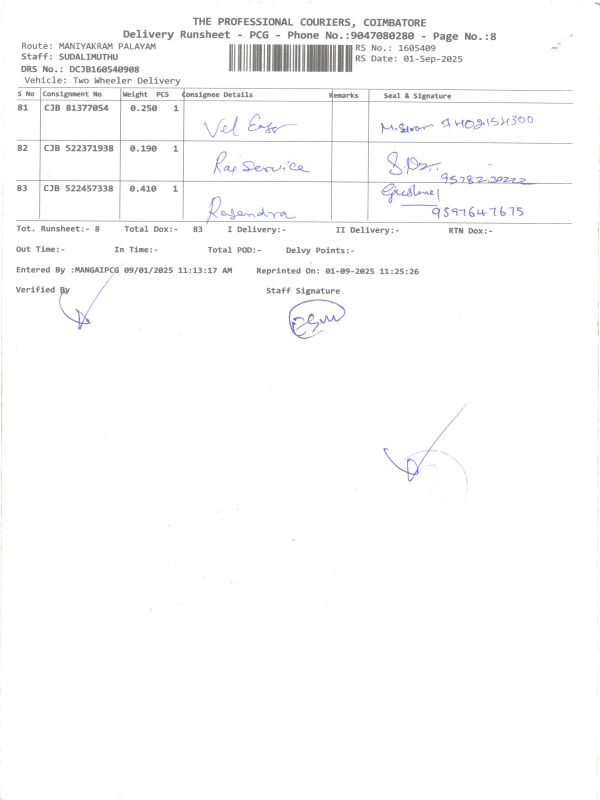 THE PROFESSIONAL COURIERS, COIMBATORE
Delivery Runsheet - PCG - Phone No.:9047080280 - Page No.:8
Route: MANIYAKRAM PALAYAM RS No.: 1605409
Staff: SUDALIMUTHU RS Date: 01-Sep-2025
DRS No.: DCJB160540908
Vehicle: Two Wheeler Delivery
S No Consignment No Weight PCS Consignee Details Remarks Seal & Signature
81 CJB 81377054 0.250 1 Vel
82 CJB 522371938 0.190 1 Raj Service
83 CJB 522457338 0.410 1 Rajendra 9597647675
Tot. Runsheet:- 8 Total Dox:- 83 I Delivery:- II Delivery:- RTN Dox:-
Out Time:- In Time:- Total POD:- Delvy Points:-
Entered By :MANGAIPCG 09/01/2025 11:13:17 AM Reprinted On: 01-09-2025 11:25:26
Verified By Staff Signature